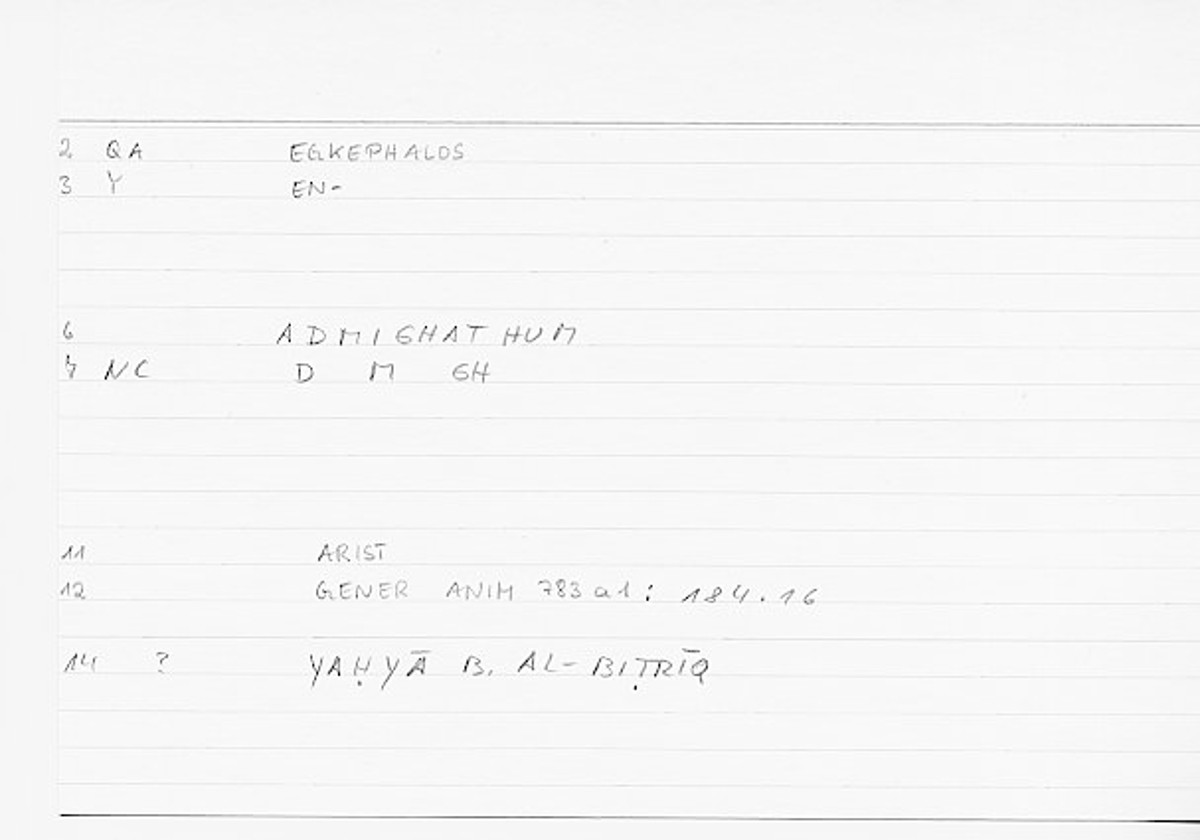 2 QA EGKEPHALOS
3 Y EN-
6 ADMIGHATHUM
7 NC D M GH
11 ARIST
12 GENER ANIM 783a1: 184.16
14 ? YAḤYĀ B. AL-BIṬRĪQ